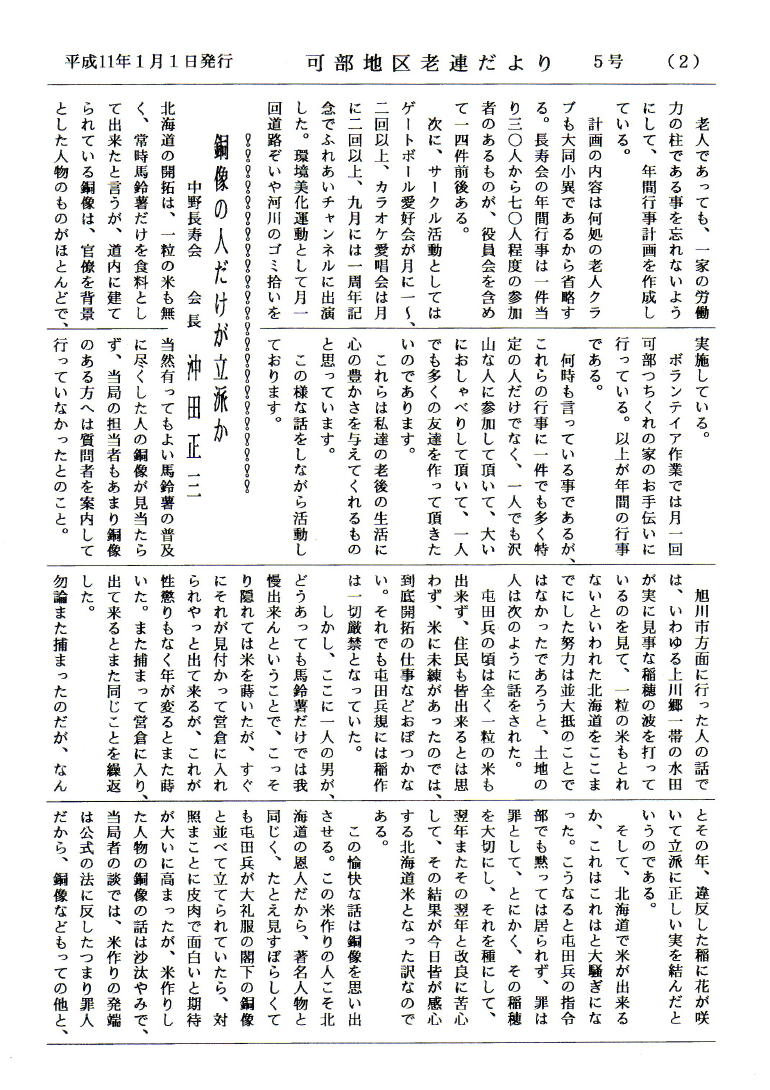 平成11年1月1日発行　可部地区老連だより　5号　（2）
老人であっても、一家の労働
力の柱である事を忘れないよう
にして、年間行事計画を作成し
ている。
計画の内容は何処の老人クラ
ブも大同小異であるから省略す
る。長寿会の年間行事は一件当
り三〇人から七〇人程度の参加
者のあるものが、役員会を含め
て一四件前後ある。
次に、サークル活動としては
ゲートボール愛好会が月に一〜、
二回以上、カラオケ愛唱会は月
に二回以上、九月には一周年記
念でふれあいチャンネルに出演
した。環境美化運動として月一
回道路ぞいや河川のゴミ拾いを
実施している。
ボランテイア作業では月一回
可部つちくれの家のお手伝いに
行っている。以上が年間の行事
である。
何時も言っている事であるが、
これらの行事に一件でも多く特
定の人だけでなく、一人でも沢
山な人に参加して頂いて、大い
におしゃべりして頂いて、一人
でも多くの友達を作って頂きた
いのであります。
これらは私達の老後の生活に
心の豊かさを与えてくれるもの
と思っています。
この様な話をしながら活動し
ております。
銅像の人だけが立派か
中野長寿会　会長　沖田正三
北海道の開拓は、一粒の米も無
く、常時馬鈴薯だけを食料とし
て出来たと言うが、道内に建て
られている銅像は、官僚を背景
とした人物のものがほとんどで、
当然有ってもよい馬鈴薯の普及
に尽くした人の銅像が見当たら
ず、当局の担当者もあまり銅像
のある方へは質問者を案内して
行っていなかったとのこと。
旭川市方面に行った人の話で
は、いわゆる上川郷一帯の水田
が実に見事な稲穂の波を打って
いるのを見て、一粒の米もとれ
ないといわれた北海道をここま
でにした努力は並大抵のことで
はなかったであろうと、土地の
人は次のように話をされた。
屯田兵の頃は全く一粒の米も
出来ず、住民も皆出来るとは思
わず、米に未練があったのでは、
到底開拓の仕事などおぼつかな
い。それでも屯田兵規には稲作
は一切厳禁となっていた。
しかし、ここに一人の男が、
どうあっても馬鈴薯だけでは我
慢出来んということで、こっそ
り隠れては米を蒔いたが、すぐ
にそれが見付かって営倉に入れ
られやっと出て来るが、これが
性懲りもなく年が変るとまた蒔
いた。また捕まって営倉に入り、
出て来るとまた同じことを繰返
した。
勿論また捕まったのだが、なん
とその年、違反した稲に花が咲
いて立派に正しい実を結んだと
いうのである。
そして、北海道で米が出来る
か、これはこれはと大騒ぎにな
った。こうなると屯田兵の指令
部でも黙っては居られず、罪は
罪として、とにかく、その稲穂
を大切にし、それを種にして、
翌年またその翌年と改良に苦心
して、その結果が今日皆が感心
する北海道米となった訳なので
ある。
この愉快な話は銅像を思い出
させる。この米作りの人こそ北
海道の恩人だから、著名人物と
同じく、たとえ見すぼらしくて
も屯田兵が大礼服の閣下の銅像
と並べて立てられていたら、対
照まことに皮肉で面白いと期待
が大いに高まったが、米作りし
た人物の銅像の話は沙汰やみで、
当局者の談では、米作りの発端
は公式の法に反したつまり罪人
だから、銅像などもっての他と、